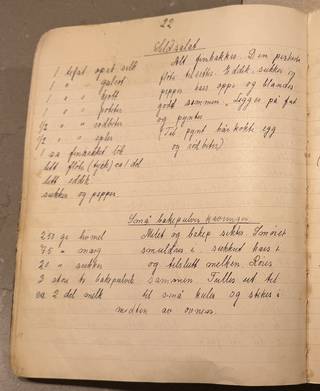 22
Sildsalat
1 tefat opsk. sild
1 " " gulrot
1 " " kjøtt
1 " " poteter
1/2 " " rødbiter
1/2 " " epler
1 ss finhakket løk
litt fløte (tykk) ca 1 del
litt eddik
sukker og pepper.
Alt finhakkes. Den piskede
fløte tilsettes. Eddik, sukker og
pepper has oppi og blandes
godt sammen. Legges på fat
og pyntes
(Til pynt hårkokte egg
og rødbiter)
Små bakepulver
250 gr hvemel
75 " marg
20 " sukker
3 store ts bakepulver
ca 2 del melk
Melet og bakep siktes. Smøret
smuldres i sukkeret has i
og tilslutt melken. Røres
sammen. Trilles ut til
til små kuler og stekes i
midten av ovnen.